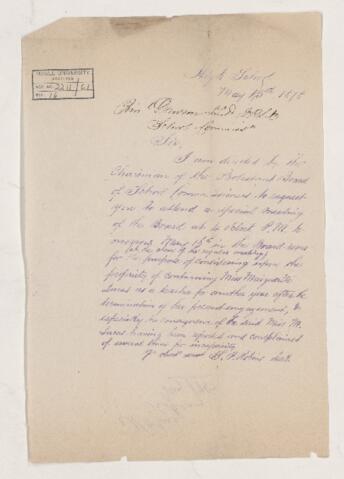 McGILL UNIVERSITY
ARCHIVES
ACC. NO. 2211/61
REF. 16
High School
May 1875
Dawson
School Commissr
Sir,
I am desired by the
Chairman of the Protestant Board
of School Commissioners to request
you to attend a special meeting
of the Board at 4 o'clock P.M. to
morrow May 15th in the Board room
(at the close of the regular meeting)
for the purpose of considering upon the
propriety of continuing Miss Marguerite
Lucas as a teacher for another year after the
termination of her present engagement,
especially in consequence of the said Miss M.
Lucas having been reported and complained
of several times for incapacity.